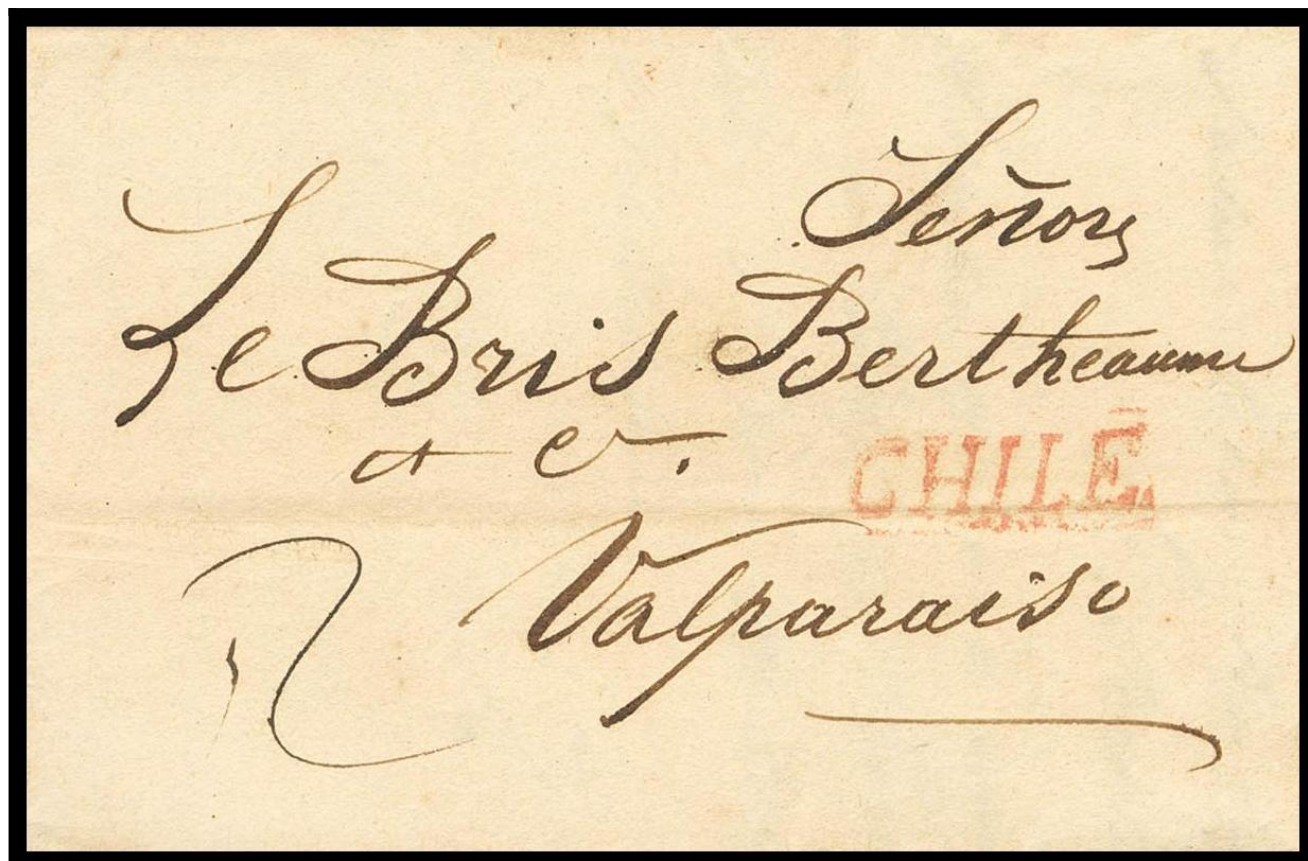 Señores
Le Bris Bertheaume
& Cª.
CHILE
Valparaiso
2